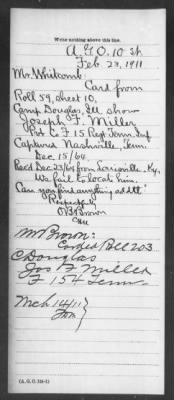 Write nothing above this line.
A.G.O. 10 St
Feb. 23, 1911
Mr. Whitcomb:
Card from
Roll 59, sheet 10,
Camp Douglas, Ill, show
Joseph F. Miller
Pvt Co F 15 Regt Tenn. Inf
Captured Nashville, Tenn.
Dec 15/64.
Recd Dec 23/64 from Louisville, Ky.
We fail to locate him.
Can you find anything addtl?
Respectfully
Brown
Mr Brown:
Carded Bk 203
C Douglas
Jos F Miller
F 154 Tenn.
Mch 14/11
(A. G. O. 314-1)